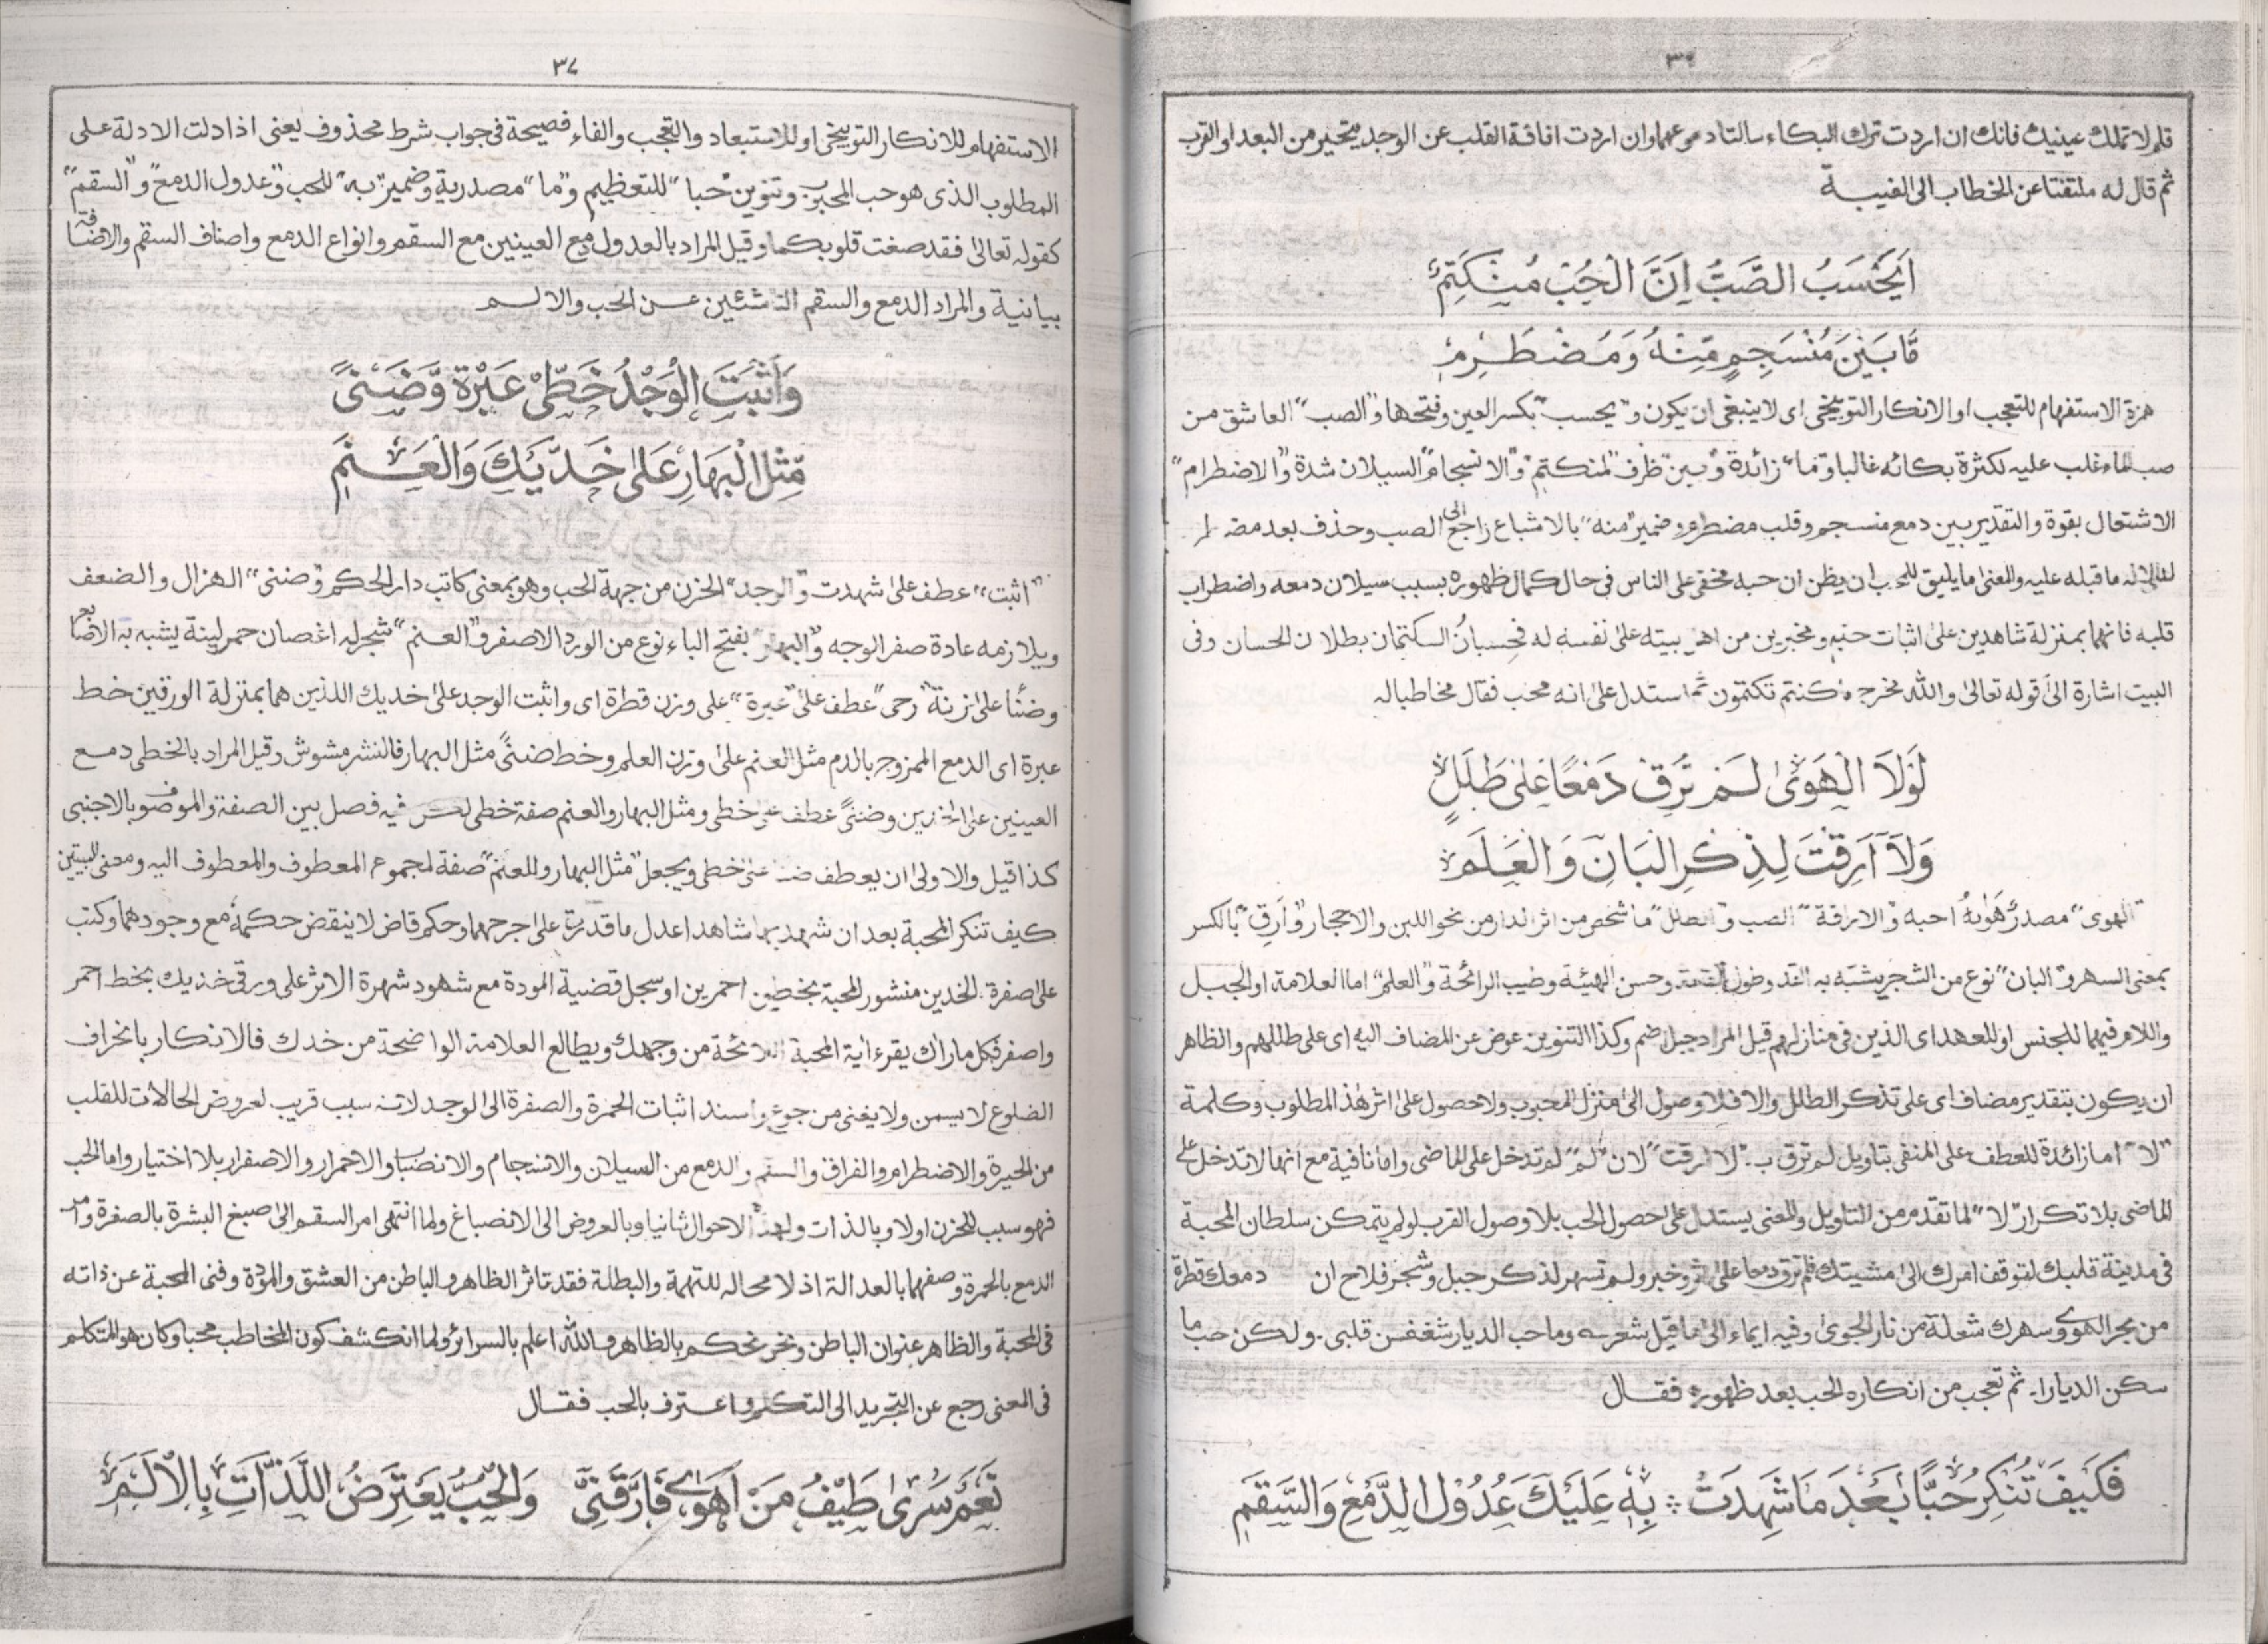 ٣٦
فلم لا تملك عينيك فانك ان اردت ترك البكاء سالتا دموعهما وان اردت افاقة القلب عن الوجد يتحير من البعد او القرب
ثم قال له ملتفتا عن الخطاب الى الغيبة
اَيَحْسَبُ الصَّبُّ اَنَّ الْحُبَّ مُنْكَتِمٌ
مَّا بَيْنَ مُنْسَجِمٍ مِّنْهُ وَمُضْطَرِمٖ
همزة الاستفهام للتعجب او الانكار التوبيخى اى لا ينبغى ان يكون و"يحسب" بكسر العين وفتحها و"الصب" العاشق من
صب الماء غلب عليه لكثرة بكائه غالبا و"ما" زائدة و"بين" ظرف "لمنكتم" و"الانسجام" السيلان شدة و"الاضطرام"
الاشتعال بقوة والتقدير بين دمع منسجم وقلب مضطرم وضمير "منه" بالاشباع راجع الى الصب وحذف بعد مضطرم
لدلالة ما قبله عليه والمعنى ما يليق للمحب ان يظن ان حبه مخفى على الناس فى حال كمال ظهوره بسبب سيلان دمعه واضطراب
قلبه فانهما بمنزلة شاهدين على اثبات حبه ومخبرين من اهل بيته على نفسه له فحسبان الكتمان بطلان الحسان وفى
البيت اشارة الى قوله تعالى والله مخرج ما كنتم تكتمون ثم استدل على انه محب فقال مخاطبا له
لَوْلَا الْهَوٰى لَمْ تُرِقْ دَمْعًا عَلٰى طَلَلٍ
وَلَا اَرِقْتَ لِذِكْرِ الْبَانِ وَالْعَلَمِ
"الهوى" مصدر هَوِيَهُ احبه و"الاراقة" الصب و"الطلل" ما شخص من اثر الدار من نحو اللبن والاحجار و"اَرِقَ" بالكسر
بمعنى السهر و"البان" نوع من الشجر يشبه به القد وطول القامة وحسن الهيئة وطيب الرائحة و"العلم" اما العلامة او الجبل
واللام فيهما للجنس او للعهد اى الذين فى منازلهم قيل المراد جبل اضم وكذا التنوين عوض عن المضاف اليه اى على طللهم والظاهر
ان يكون بتقدير مضاف اى على تذكر الطلل والا فلا وصول الى منزل المحبوب ولا حصول على اثر هذا المطلوب وكلمة
"لا" اما زائدة للعطف على المنفى بتاويل لم ترق بـ "لا ارقت" لان "لم" لم تدخل على الماضى واما نافية مع انها لا تدخل على
الماضى بلا تكرار "لا" لما تقدم من التاويل والمعنى يستدل على حصول الحب بلا وصول القرب لو لم يتمكن سلطان المحبة
فى مدينة قلبك لتوقف امرك الى مشيتك فلم ترق دمعا على اثر وخبر ولم تسهر لذكر جبل وشجر فلاح ان دمعك قطرة
من بحر الهوى وسهرك شعلة من نار الجوى وفيه ايماء الى ما قيل شعر؎ وما حب الديار شغفن قلبى ۔ ولكن حب ما
سكن الديارا۔ ثم تعجب من انكاره الحب بعد ظهوره فقال
فَكَيْفَ تُنْكِرُ حُبًّا بَعْدَ مَا شَهِدَتْ ؞ بِهٖ عَلَيْكَ عُدُوْلُ الدَّمْعِ وَالسَّقَمِ
٣٧
الاستفهام للانكار التوبيخى او للاستبعاد والتعجب والفاء فصيحة فى جواب شرط محذوف يعنى اذا دلت الادلة على
المطلوب الذى هو حب المحبوب وتنوين "حبا" للتعظيم و"ما" مصدرية وضمير "به" للحب و"عدول الدمع" و"السقم"
كقوله تعالى فقد صغت قلوبكما وقيل المراد بالعدول مع العينين مع السقم وانواع الدمع واصناف السقم والاضافة
بيانية والمراد الدمع والسقم الناشئين عن الحب والالم
وَاَثْبَتَ الْوَجْدُ خَطَّىْ عَبْرَةٍ وَّضَنًى
مِّثْلَ الْبَهَارِ عَلٰى خَدَّيْكَ وَالْعَنَمِ
"اثبت" عطف على شهدت و"الوجد" الحزن من جهة الحب وهو بمعنى كاتب دار الحكم و"ضنى" الهزال والضعف
ويلازمه عادة صفر الوجه و"البهار" بفتح الباء نوع من الورد الاصفر و"العنم" شجر له اغصان حمر لينة يشبه به الاصابع
وضنًا على زنة "رحى" عطف على "عبرة" على وزن قطرة اى واثبت الوجد على خديك اللذين هما بمنزلة الورقين خط
عبرة اى الدمع الممزوج بالدم مثل العنم على وزن العلم وخط ضنًى مثل البهار فالنشر مشوش وقيل المراد بالخطى دمع
العينين على الخدين وضنًى عطف على خطى ومثل البهار والعنم صفة خطى لكن فيه فصل بين الصفة والموصوف بالاجنبى
كذا قيل والاولى ان يعطف ضنى على خطى ويجعل "مثل البهار والعنم" صفة لمجموع المعطوف والمعطوف اليه ومعنى البيتين
كيف تنكر المحبة بعد ان شهد بها شاهدا عدل ما قدرت على جرحهما وحكم قاض لا ينقض حكمه مع وجودهما وكتب
على صفرة الخدين منشور المحبة بخطين احمرين او سجل قضية المودة مع شهود شهرة الاثر على ورقى خديك بخط احمر
واصفر فكل ما راك يقرء اية المحبة اللائحة من وجهك ويطالع العلامة الواضحة من خدك فالانكار بانحراف
الضلوع لا يسمن ولا يغنى من جوع واسند اثبات الحمرة والصفرة الى الوجد لانه سبب قريب لعروض الحالات للقلب
من الحيرة والاضطرام والفراق والسقم والدمع من السيلان والانسجام والانصباب والاحمرار والاصفرار بلا اختيار واما الحب
فهو سبب للحزن اولا وبالذات ولهذه الاحوال ثانيا وبالعروض الى الانصباغ ولما انتهى امر السقم الى صبغ البشرة بالصفرة وامر
الدمع بالحمرة وصفهما بالعدالة اذ لا محاله للتهمة والبطالة فقد تاثر الظاهر والباطن من العشق والمودة وفنى المحبة عن ذاته
فى المحبة والظاهر عنوان الباطن ونحن نحكم بالظاهر والله اعلم بالسرائر ولما انكشف كون المخاطب محبا وكان هو المتكلم
فى المعنى رجع عن التجريد الى التكلم واعترف بالحب فقال
نَعَمْ سَرٰى طَيْفُ مَنْ اَهْوٰى فَارَّقَنِىْ وَالْحُبُّ يَعْتَرِضُ اللَّذَّاتِ بِالْاَلَمِ